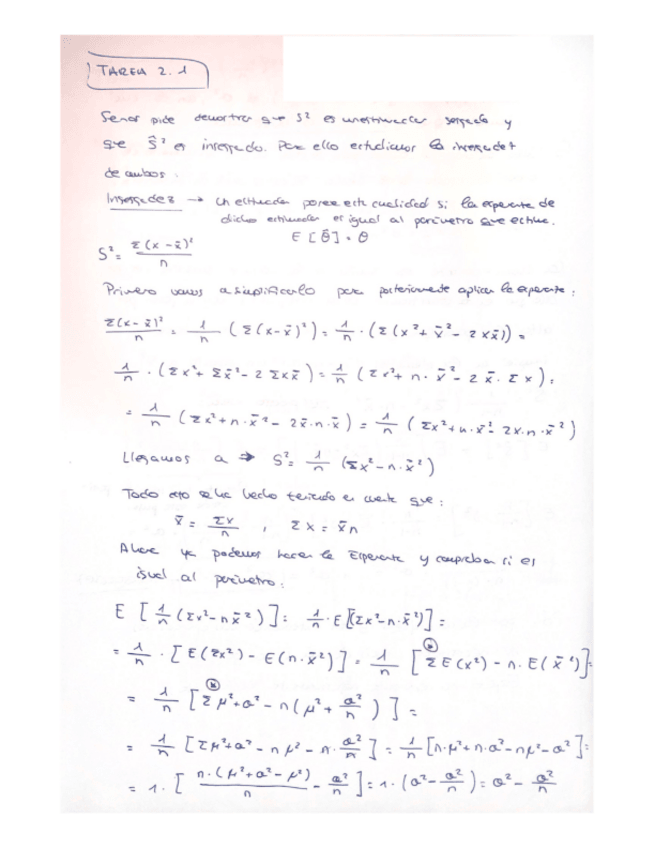 TAREA 2.1
Se nos pide demostrar que S² es un estimador sesgado y
que Ŝ² es insesgado. Para ello estudiamos la insesgadez
de ambos.
Insesgadez → Un estimador posee esta cualidad si la esperanza de
dicho estimador es igual al parámetro que estima.
E [θ̂] = θ
S² = Σ(x - x̄)² / n
Primero vamos a simplificarlo para posteriormente aplicar la esperanza:
Σ(x - x̄)² / n = 1/n (Σ(x - x̄)²) = 1/n · (Σ(x² + x̄² - 2xx̄)) =
1/n · (Σx² + Σx̄² - 2Σxx̄) = 1/n (Σx² + n · x̄² - 2x̄ · Σx) =
= 1/n (Σx² + n · x̄² - 2x̄ · n · x̄) = 1/n (Σx² + n · x̄² - 2x · n · x̄²)
Llegamos a ⇒ S² = 1/n (Σx² - n · x̄²)
Todo esto se ha hecho teniendo en cuenta que:
x̄ = Σx / n , Σx = x̄n
Ahora ya podemos hacer la Esperanza y comprobar si es
igual al parámetro:
E [1/n (Σx² - nx̄²)] = 1/n · E[(Σx² - n · x̄²)] =
= 1/n · [E(Σx²) - E(n · x̄²)] = 1/n [Σ E(x²) - n · E(x̄²)] =
= 1/n [Σ μ² + σ² - n(μ² + σ²/n)] =
= 1/n [Σμ² + σ² - nμ² - n · σ²/n] = 1/n [n · μ² + n · σ² - nμ² - σ²] =
= 1 · [n · (μ² + σ² - μ²) / n - σ²/n] = 1 · (σ² - σ²/n) = σ² - σ²/n